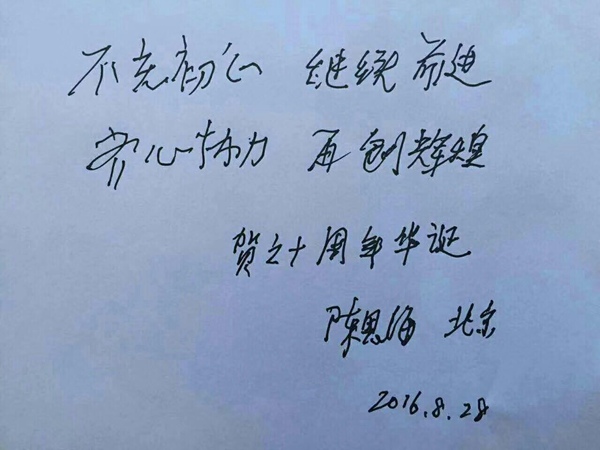 不忘初心 继续前进
齐心协力 再创辉煌
贺之十周年华诞
陈恩海 北京
2016.8.28